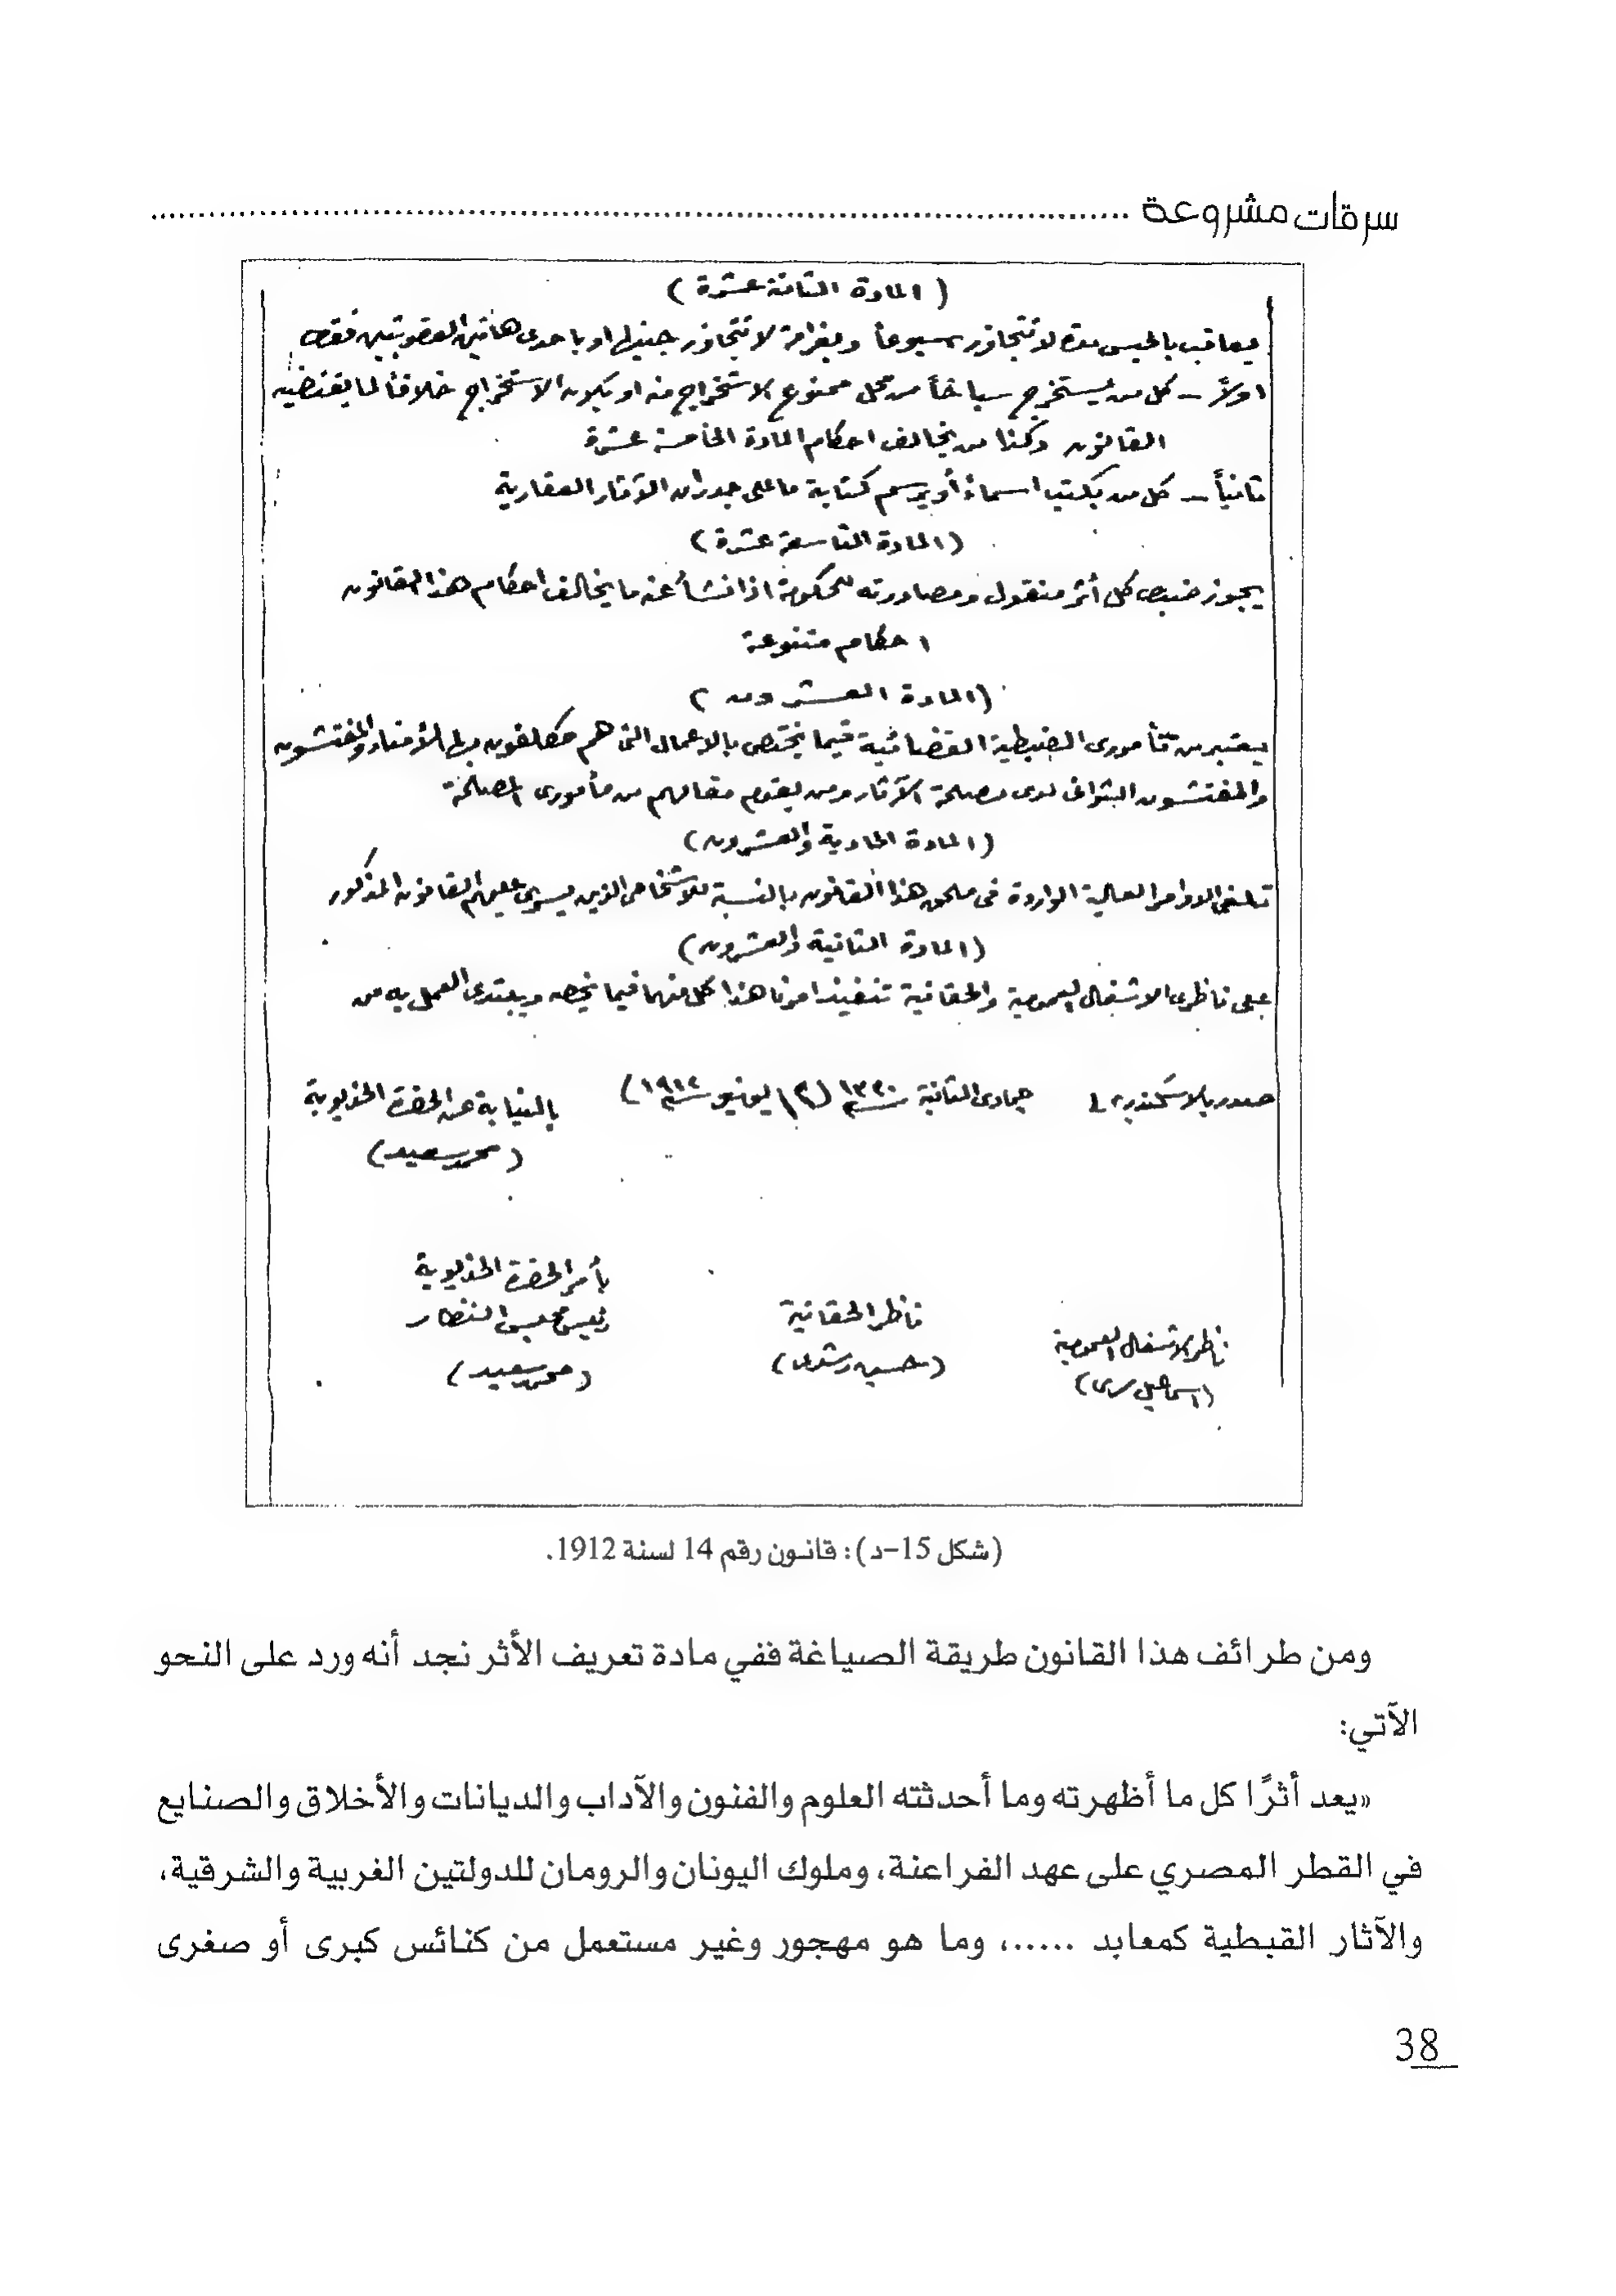 سرقات مشروعة
(المادة الثامنة عشرة)
يعاقب بالحبس مدة لا تتجاوز سبوعاً وبغرامة لا تتجاوز جنيها او باحدى هاتين العقوبتين فقط
اولاً – كل من يستخرج سباخاً من محل ممنوع الاستخراج منه او يكون الاستخراج خلافاً لما يقتضيه
القانون وكذا من يخالف احكام المادة الخامسة عشرة
ثانياً – كل من يكتب اسماءً أو يرسم كتابة ما على جدران الآثار العقارية
(المادة التاسعة عشرة)
يجوز ضبط كل أثر منقول ومصادرته للحكومة اذا نشأ عنه ما يخالف احكام هذا القانون
احكام متنوعة
(المادة العشرون)
يعتبر من مأمورى الضبطية القضائية فيما يختص بالاعمال التى هم مكلفون بها الأمناء والمفتشون
والمفتشون الثوانى لدى مصلحة الآثار ومن يقوم مقامهم من مأمورى المصلحة
(المادة الحادية والعشرون)
تلغى الاوامر العالية الواردة فى ملحق هذا القانون بالنسبة للاشخاص الذين يسرى عليهم القانون المذكور
(المادة الثانية والعشرون)
على ناظرى الاشغال العمومية والحقانية تنفيذ امرنا هذا كل منهما فيما يخصه ويبتدى العمل به من
صدر بالاسكندرية جمادى الثانية سنة ١٣٣٠ (١٢ يونيو سنة ١٩١٢) بالنيابة عن الحضرة الخديوية
(محمد سعيد)
بأمر الحضرة الخديوية
ناظر الاشغال العمومية ناظر الحقانية رئيس مجلس النظار
(اسماعيل سرى) (حسين رشدى) (محمد سعيد)
(شكل 15-د): قانون رقم 14 لسنة 1912.
ومن طرائف هذا القانون طريقة الصياغة ففي مادة تعريف الأثر نجد أنه ورد على النحو
الآتي:
«يعد أثرًا كل ما أظهرته وما أحدثته العلوم والفنون والآداب والديانات والأخلاق والصنايع
في القطر المصري على عهد الفراعنة، وملوك اليونان والرومان للدولتين الغربية والشرقية،
والآثار القبطية كمعابد ......، وما هو مهجور وغير مستعمل من كنائس كبرى أو صغرى
38